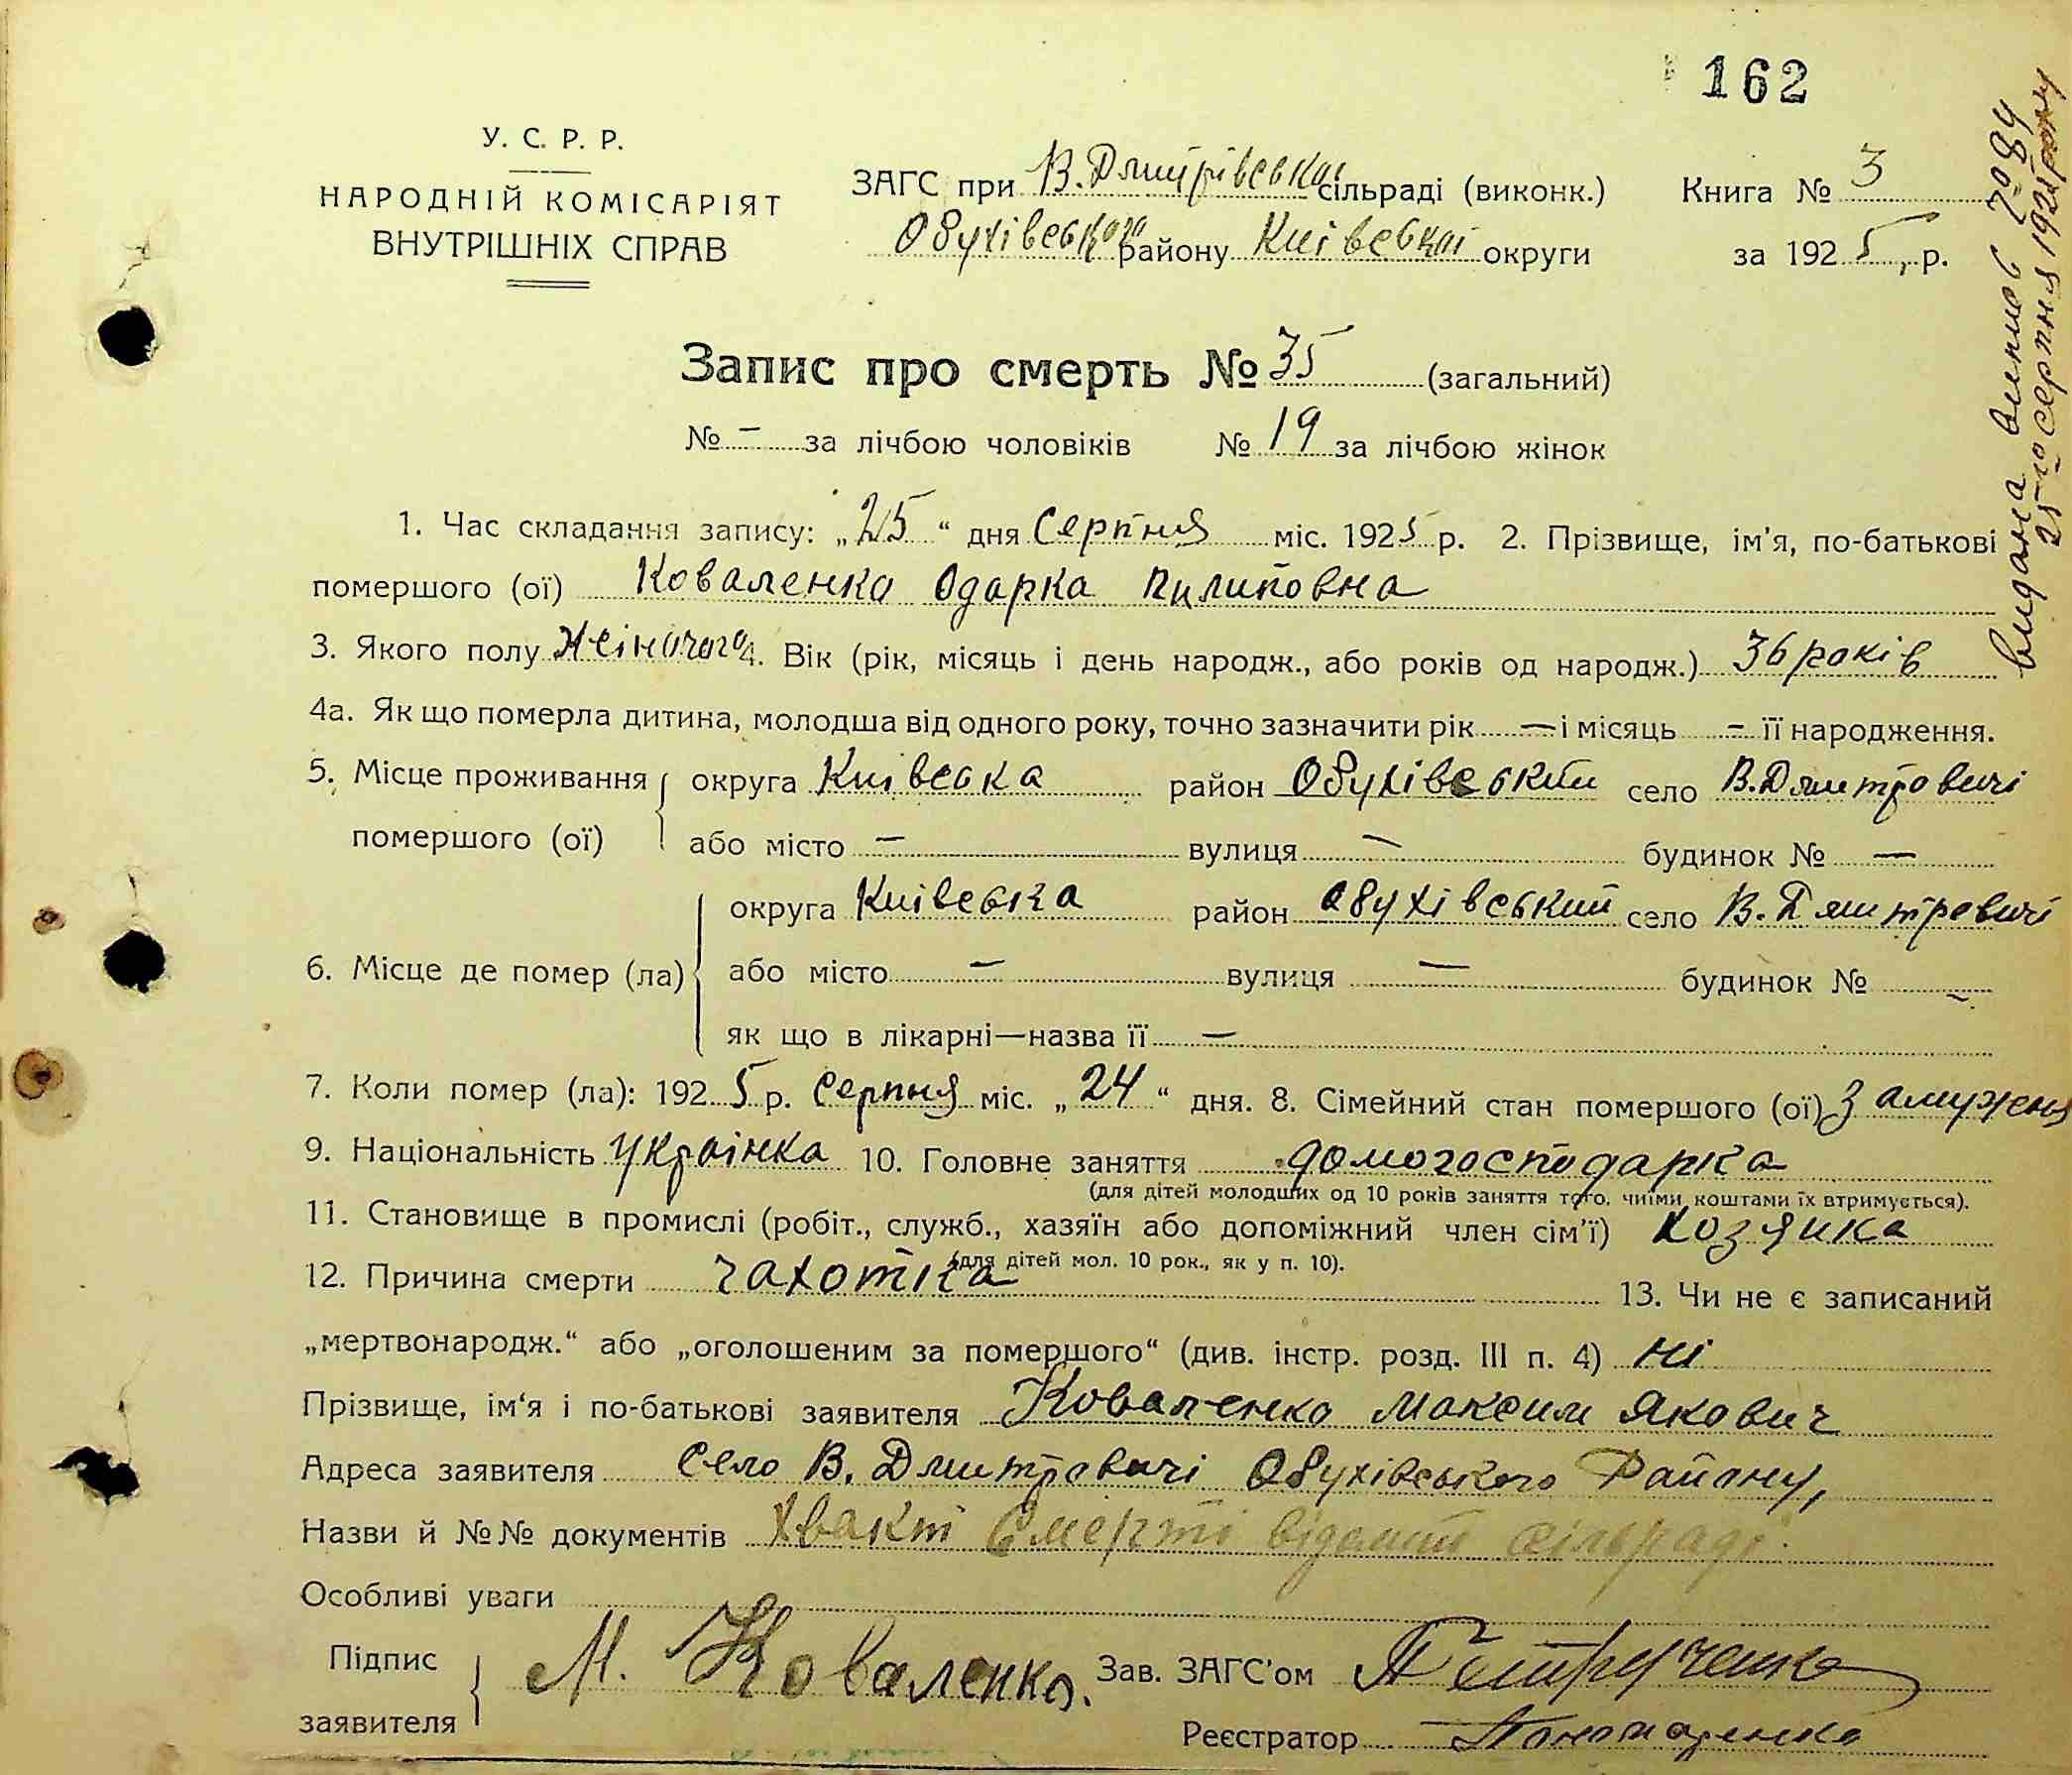 162
У. С. Р. Р.
НАРОДНІЙ КОМІСАРІЯТ
ВНУТРІШНІХ СПРАВ
ЗАГС при В. Дмитрівській сільраді (виконк.)
Обухівського району Київської округи
Книга № 3
за 1925, р.
видана виписъ 7084
25го серпня 1925 року
Запис про смерть № 35 (загальний)
№ – за лічбою чоловіків № 19 за лічбою жінок
1. Час складання запису: „25“ дня Серпня міс. 1925 р. 2. Прізвище, ім'я, по-батькові
помершого (ої) Коваленко Одарка Пилиповна
3. Якого полу жіночого 4. Вік (рік, місяць і день народж., або років од народж.) 36 років
4а. Як що померла дитина, молодша від одного року, точно зазначити рік — і місяць – її народження.
5. Місце проживання округа Київська район Обухівський село В. Дмитровичі
помершого (ої) або місто — вулиця — будинок № —
округа Київська район Обухівський село В. Дмитревичі
6. Місце де помер (ла) або місто — вулиця — будинок № –
як що в лікарні—назва її —
7. Коли помер (ла): 1925 р. Серпня міс. „24“ дня. 8. Сімейний стан помершого (ої) замужня
9. Національність Українка 10. Головне заняття домогосподарка
(для дітей молодших од 10 років заняття того, чиїми коштами їх втримується).
11. Становище в промислі (робіт., служб., хазяїн або допоміжний член сім'ї) хозяйка
(для дітей мол. 10 рок., як у п. 10).
12. Причина смерти чахотка 13. Чи не є записаний
„мертвонародж.“ або „оголошеним за помершого“ (див. інстр. розд. III п. 4) ні
Прізвище, ім'я і по-батькові заявителя Коваленко Максим Якович
Адреса заявителя Село В. Дмитревичі Обухівського Району,
Назви й №№ документів хвакт Смерті відомий сільраді.
Особливі уваги
Підпис
заявителя
М. Коваленко.
Зав. ЗАГС'ом Петрученко
Реєстратор Пономаренко